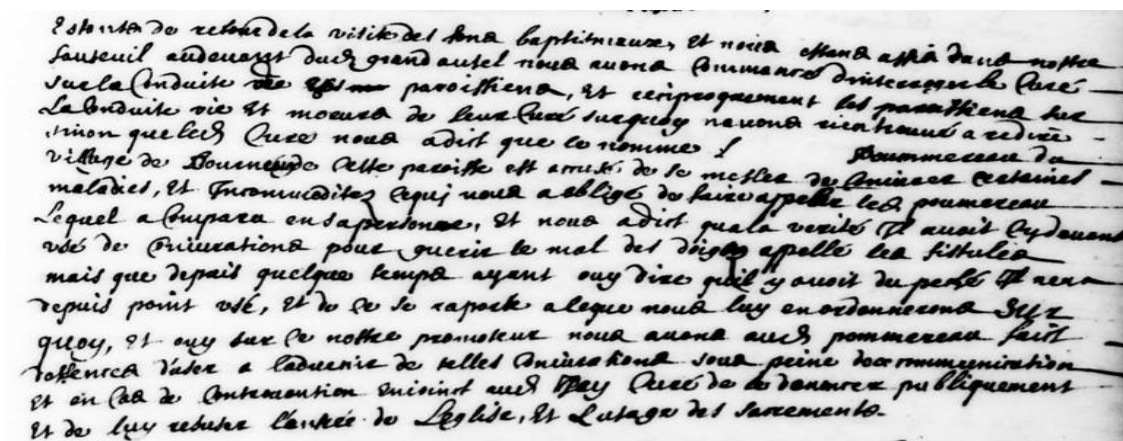 Estants de retour de la visite des fons baptismaux, et nous estans assis dans nostre
fauteuil audevant dud grand autel nous avons commancé dinterroger le Curé
sur la Conduite paroissiens, et reciproquement les paroissiens sur
La Conduite vie et moeurs de leur Curé surquoy navons rien trouvé a redire
sinon que led Curé nous a dict que le nommé Pommereau du
village de cette paroisse est accusé de se mesler de Coniurer certaines
maladies, et Incommoditez cequi nous a obligé de faire appeller led pommereau
Lequel a Comparu en sa personne, et nous a dict qua la verité Il avoit cy devant
usé de Coniurations pour guerir le mal des doigts appellé les fistules
mais que depuis quelque temps ayant ouy dire quil y avoit du peché Il nen a
depuis point usé, et de ce se raporte a ceque nous luy en ordonnerons sur
quoy, et ouy sur ce nostre promoteur nous avons aud pommereau faict
deffences d'user a ladvenir de telles Coniurations sous peine dexcommunication
et en Cas de Contravention enioinct aud Curé de le denoncer publiquement
et de luy refuser l'entrée de L'eglise, et L'usage des sacrements.